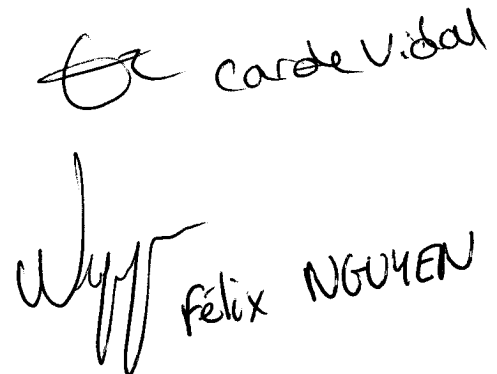 Carde Vidal
Félix NGUYEN